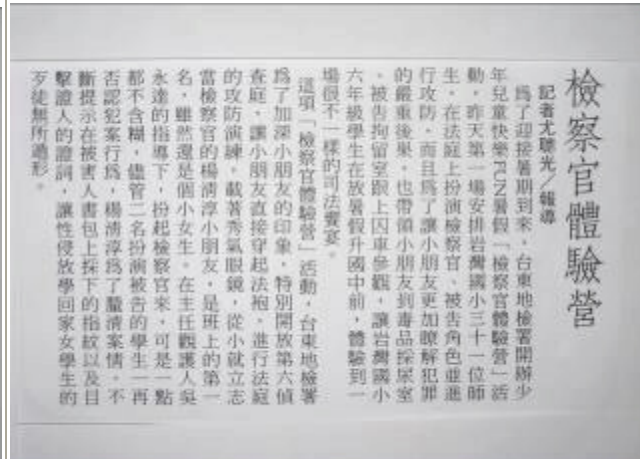 檢察官體驗營
記者尤聰光╱報導
為了迎接暑期到來，台東地檢署開辦少
年兒童快樂FUN暑假「檢察官體驗營」活
動，昨天第一場安排岩灣國小三十一位師
生，在法庭上扮演檢察官、被告角色並進
行攻防，而且為了讓小朋友更加瞭解犯罪
的嚴重後果，也帶領小朋友到毒品採尿室
、被告拘留室跟上囚車參觀，讓岩灣國小
六年級學生在放暑假升國中前，體驗到一
場很不一樣的司法饗宴。
這項「檢察官體驗營」活動，台東地檢署
為了加深小朋友的印象，特別開放第六偵
查庭，讓小朋友直接穿起法袍，進行法庭
的攻防演練，戴著秀氣眼鏡，從小就立志
當檢察官的楊清淳小朋友，是班上的第一
名，雖然還是個小女生，在主任觀護人吳
永達的指導下，扮起檢察官來，可是一點
都不含糊，儘管二名扮演被告的學生一再
否認犯案行為，楊清淳為了釐清案情，不
斷提示在被害人書包上採下的指紋以及目
擊證人的證詞，讓性侵放學回家女學生的
歹徒無所遁形。